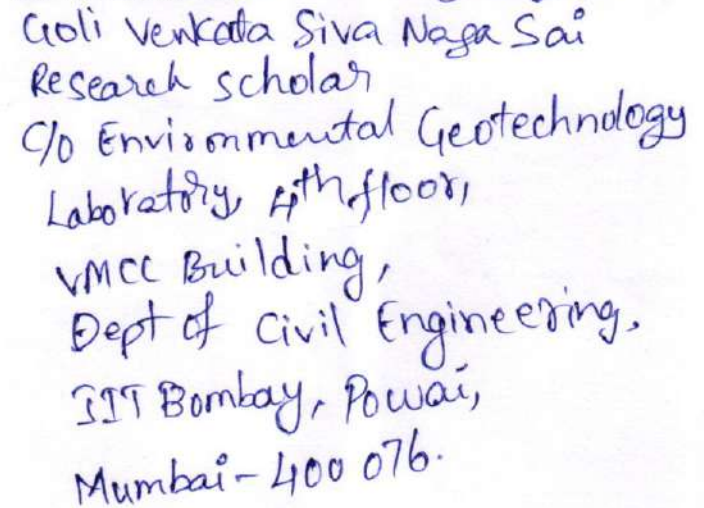 Goli Venkata Siva Naga Sai
Research scholar
C/o Environmental Geotechnology
Laboratory, 4th floor,
VMCC Building,
Dept of Civil Engineering,
IIT Bombay, Powai,
Mumbai - 400 076.